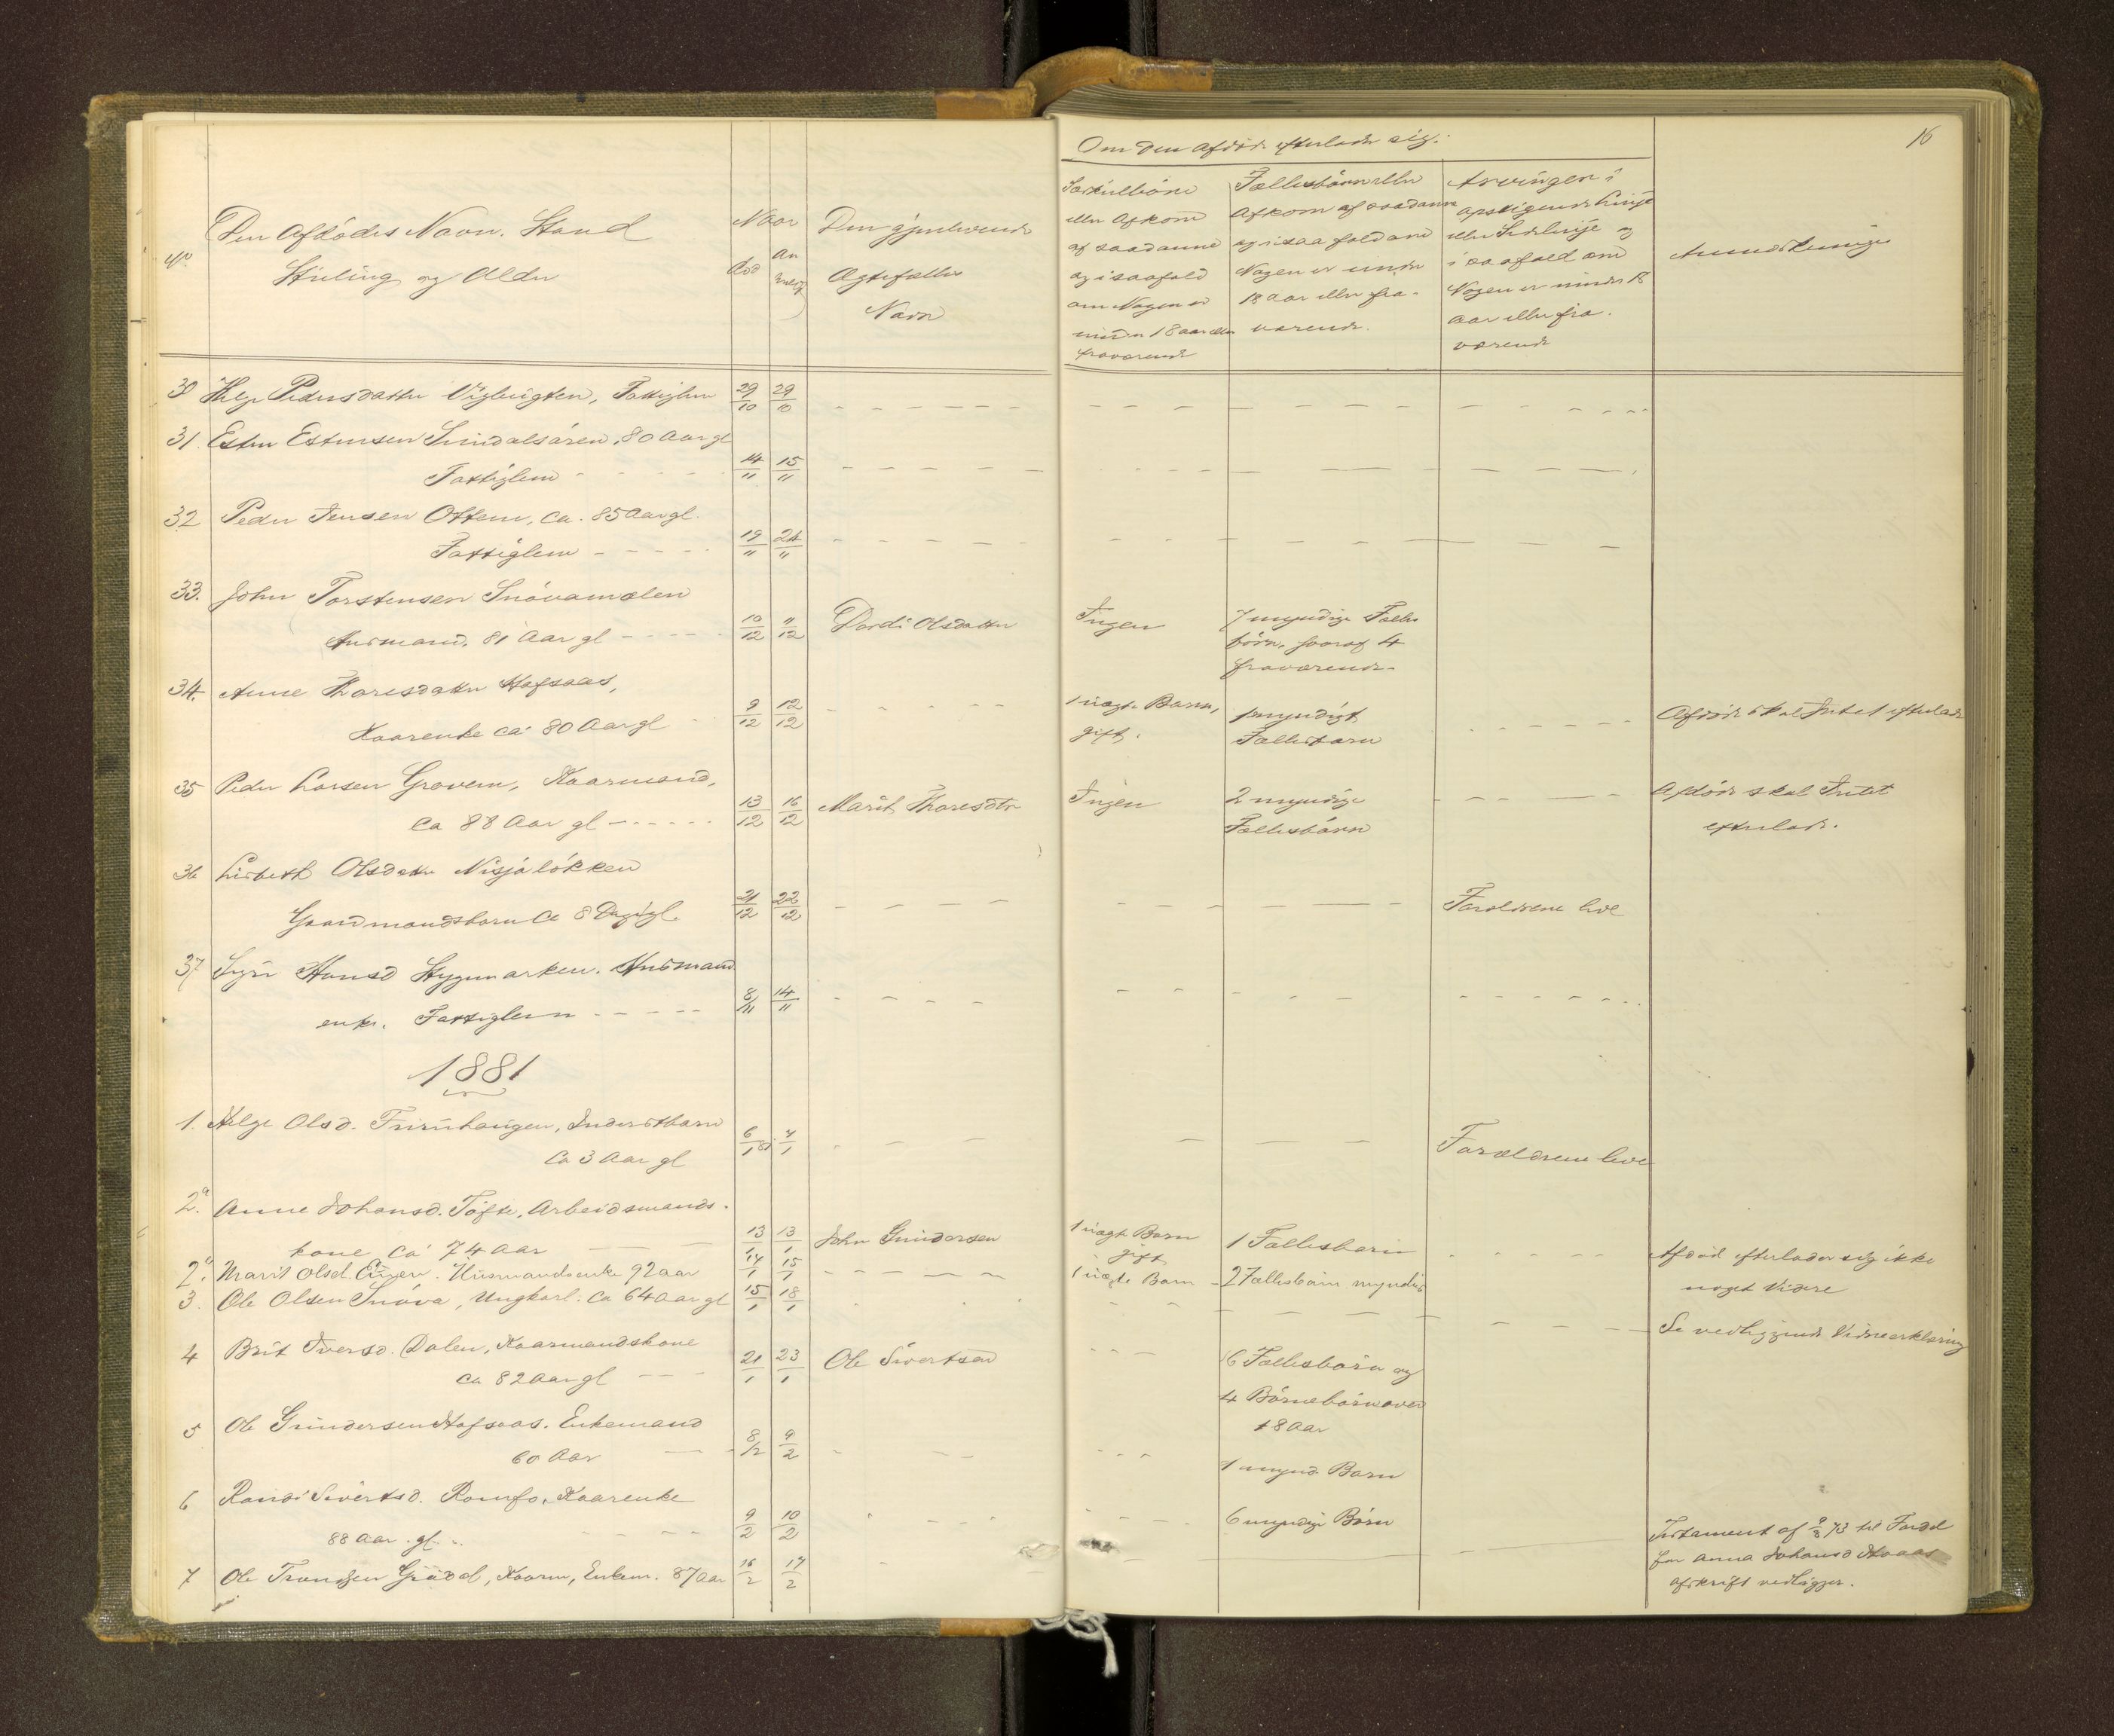 16
Om den Afdøde efterlader sig:
No
Den Afdødes Navn. Stand
Stilling og Alder
Naar
død
An
meldt
Den gjenlevende
Ægtefælles
Navn
Særkulbørn
eller Afkom
af saadanne
og i saafald
om Nogen er
under 18 aar eller
fraværende
Fællesbørn eller
Afkom af saadanne
og i saa fald om
Nogen er under
18 aar eller fra-
værende.
Arvinger i
opstigende Linje
eller Sidelinje og
i saafald om
Nogen er under 18
aar eller fra-
værende
Anmærkninger
30 Pedersdatter Fattiglem 29/10 29/10
31. Esten Estensen 80 Aar gl
Fattiglem 14/11 15/11
32 Peder Jensen Ottem, ca. 85 Aar gl.
Fattiglem 19/11 24/11
33. John Torstensen Snøvamælen
Husmand, 81 Aar gl 10/12 11/12 Dordi Olsdatter Ingen 7 myndige Fælles
børn, hvoraf 4
fraværende.
34. Anne Thoresdatter Hafsaas,
Kaarenke ca 80 Aar gl 9/12 12/12 1 uægte Barn,
gift. 1 myndigt
Fællesbarn Afdøde skal Intet efterlade
35 Peder Larsen Grøvem, Kaarmand,
ca 88 Aar gl 13/12 16/12 Marit Thoresdtr Ingen 2 myndige
Fællesbørn Afdøde skal Intet
efterlade.
36 Lisbeth Olsdatter Nisjaløkken
Gaardmandsbarn ca 8 Dage gl. 21/12 22/12 Forældrene leve
37 Hansd Styggmarken. Husmand
enke. Fattiglem 8/11 14/11
1881
1. Helge Olsd. Furuhaugen, Inderstbarn
ca 3 Aar gl 6/1 81 7/1 Forældrene leve
2.a Anne Johansd. Tøfte, Arbeidsmands-
kone ca 74 Aar 13/1 13/1 John Gundersen 1 uægte Barn
gift 1 Fællesbarn Afdød efterlader sig ikke
noget Videre
2. Marit Olsd. Husmandsenke 92 aar 14/1 15/1 1 uægte Barn - 2 Fællesbørn myndige
3. Ole Olsen Snøva, Ungkarl. ca 64 Aar gl 15/1 18/1 Se vedliggende Vidneerklæring
4 Brit Iversd. Dalen, Kaarmandskone
ca 82 Aar gl 21/1 23/1 Ole Sivertsen 6 Fællesbørn og
4 Børnebørn over
18 Aar
5 Ole Gundersen Hafsaas. Enkemand
60 Aar 8/2 9/2 1 mynd. Barn
6 Randi Sivertsd. Romfo, Kaarenke
88 aar. gl. 9/2 10/2 6 myndige Børn
7 Ole Trondsen Grødal, Kaarm, Enkem. 87 aar 16/2 17/2 Testament af 9/8 73 til Fordel
for Anna Johansd
afskrift vedligger.